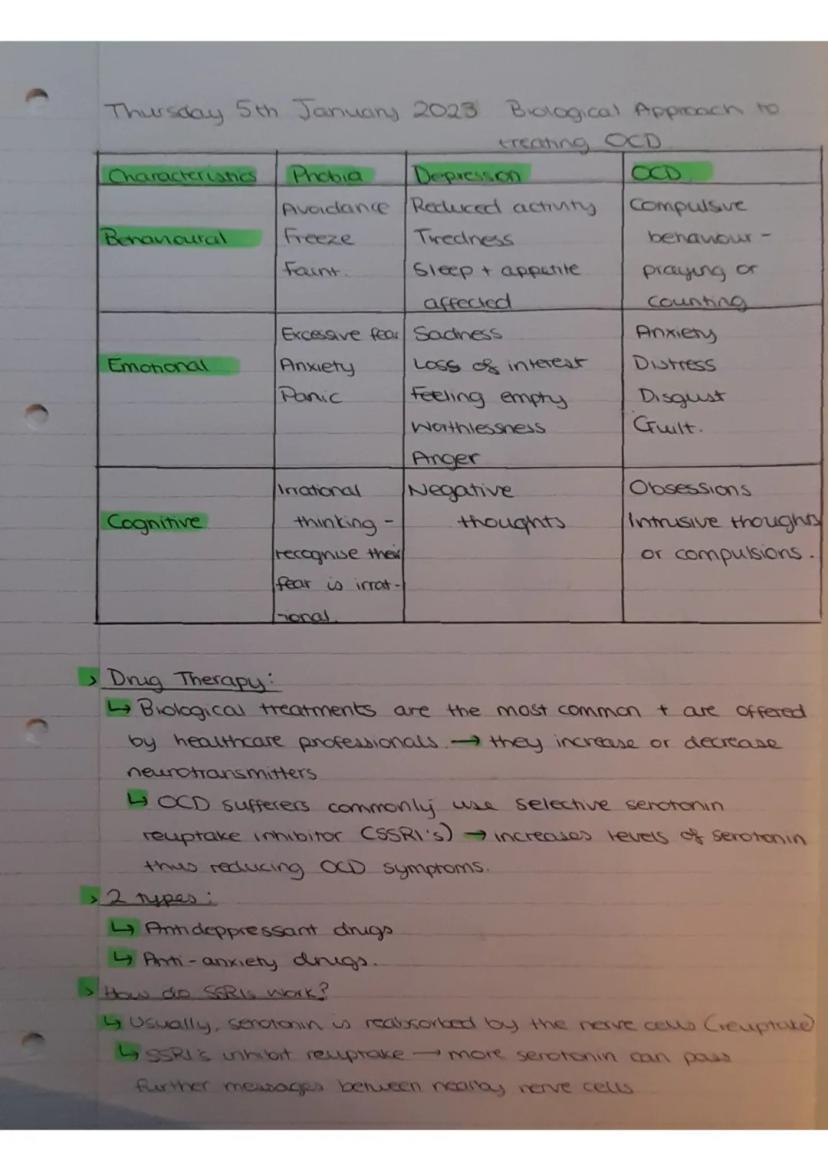 Thursday 5th January 2023 Biological Approach to
treating OCD
Characteristics Phobia Depression OCD
Behavioural
Avoidance
Freeze
Faint.
Reduced activity
Tiredness
Sleep + appetite
affected
Compulsive
behaviour -
praying or
counting
Emotional
Excessive fear
Anxiety
Panic
Sadness
Loss of interest
Feeling empty
Worthlessness
Anger
Anxiety
Distress
Disgust
Guilt.
Cognitive
Irrational
thinking -
recognise their
fear is irrat-
ional.
Negative
thoughts
Obsessions
Intrusive thoughts
or compulsions.
> Drug Therapy:
↳ Biological treatments are the most common + are offered
by healthcare professionals → they increase or decrease
neurotransmitters
↳ OCD sufferers commonly use selective serotonin
reuptake inhibitor (SSRI's) → increases levels of serotonin
thus reducing OCD symptoms.
> 2 types:
↳ Antideppressant drugs
↳ Anti-anxiety drugs.
> How do SSRIs work?
↳ Usually, serotonin is reabsorbed by the nerve cells (reuptake)
↳ SSRI's inhibit reuptake → more serotonin can pass
further messages between nearby nerve cells